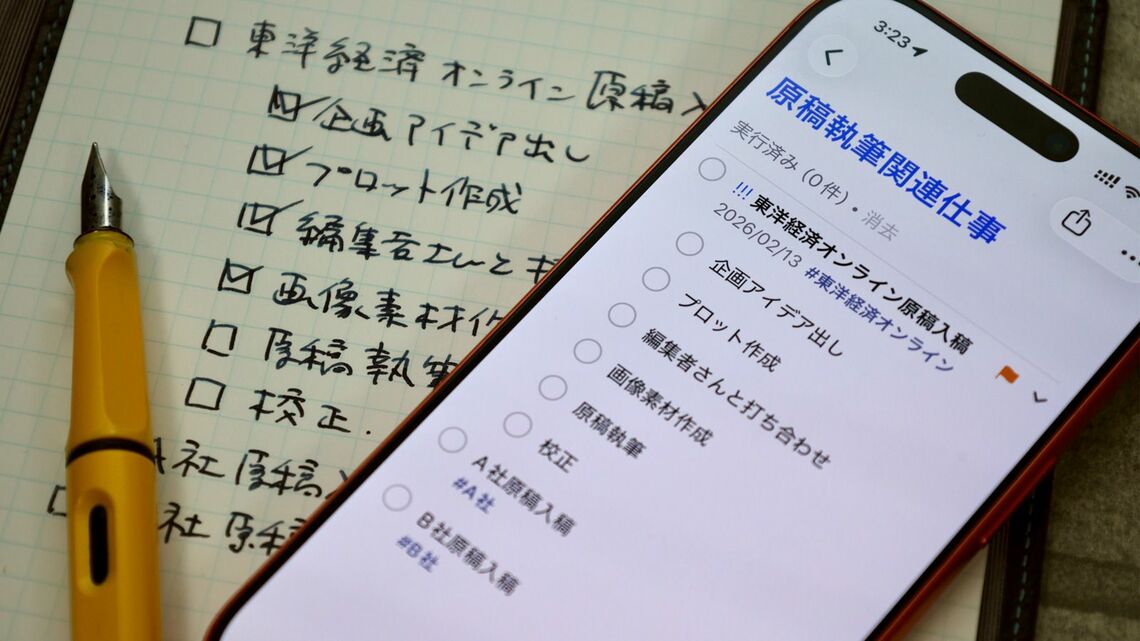 □ 東洋経済オンライン原稿入
☑ 企画アイデア出し
☑ プロット作成
☑ 編集者さんと打
☑ 画像素材作
□ 原稿執筆
□ 校正.
A社原稿入
□ 社原稿
3:23
原稿執筆関連仕事
実行済み (0件)・消去
!!! 東洋経済オンライン原稿入稿
2026/02/13 #東洋経済オンライン
企画アイデア出し
プロット作成
編集者さんと打ち合わせ
画像素材作成
原稿執筆
校正
A社原稿入稿
#A社
B社原稿入稿
#B社